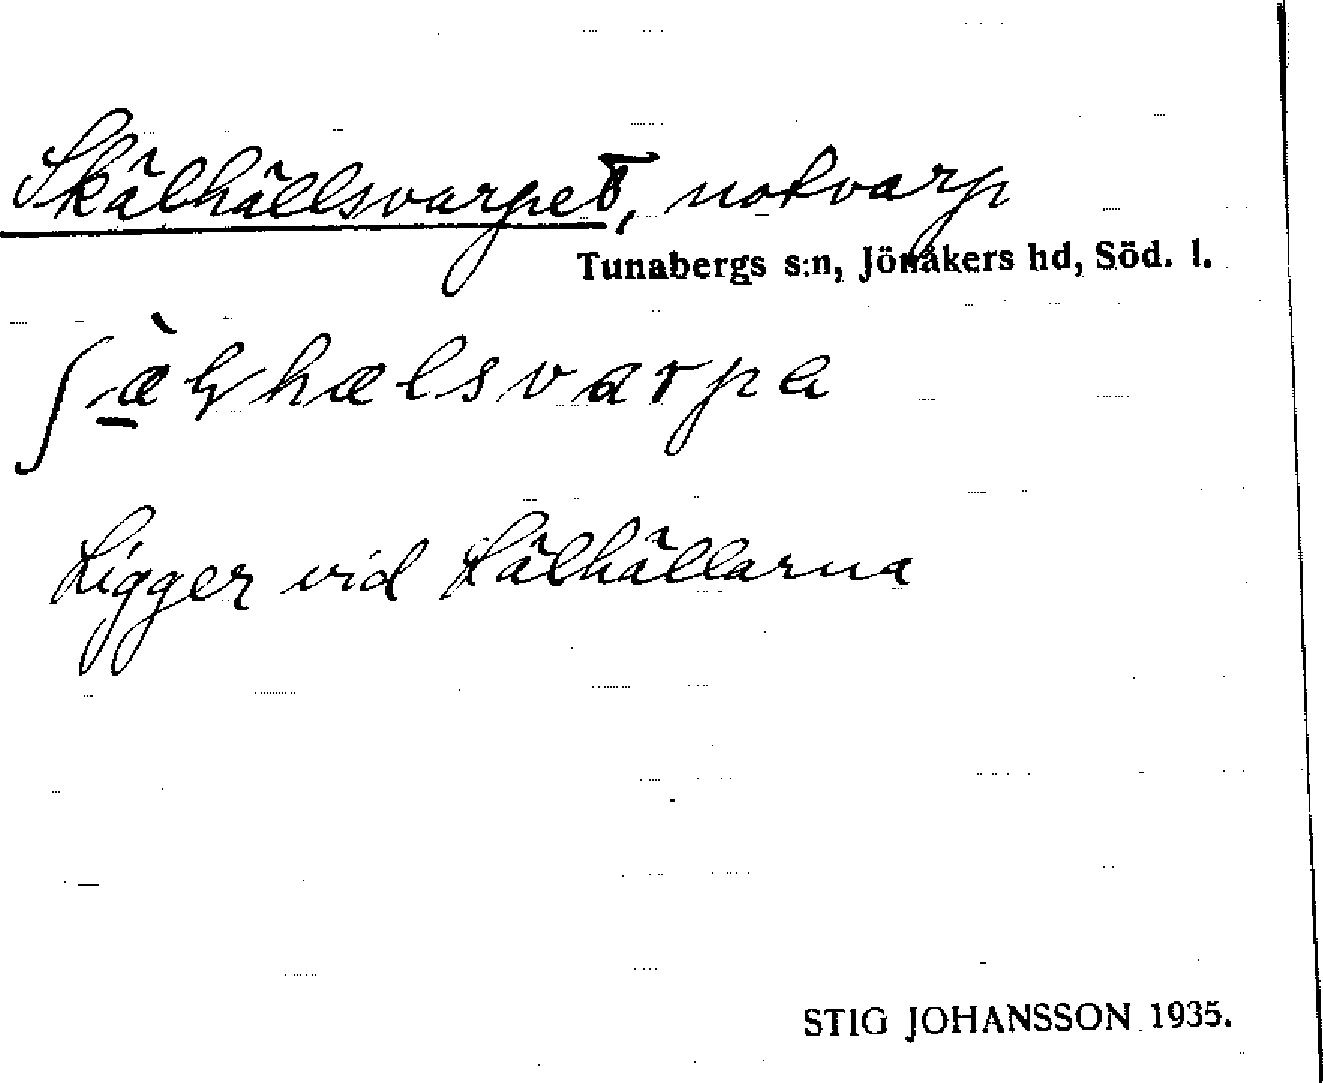 Skälhällsvarpet, notvarp
Tunabergs s:n, Jönåkers hd, Söd. l.
Ligger vid Sälhällarna
STIG JOHANSSON 1935.